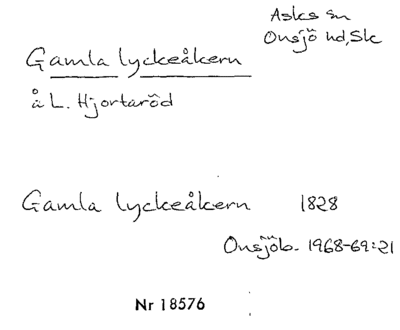 Asks sn
Onsjö hd, Sk
Gamla lyckeåkern
å L. Hjortaröd
Gamla lyckeåkern 1828
Onsjöb. 1968-69:21
Nr 18576